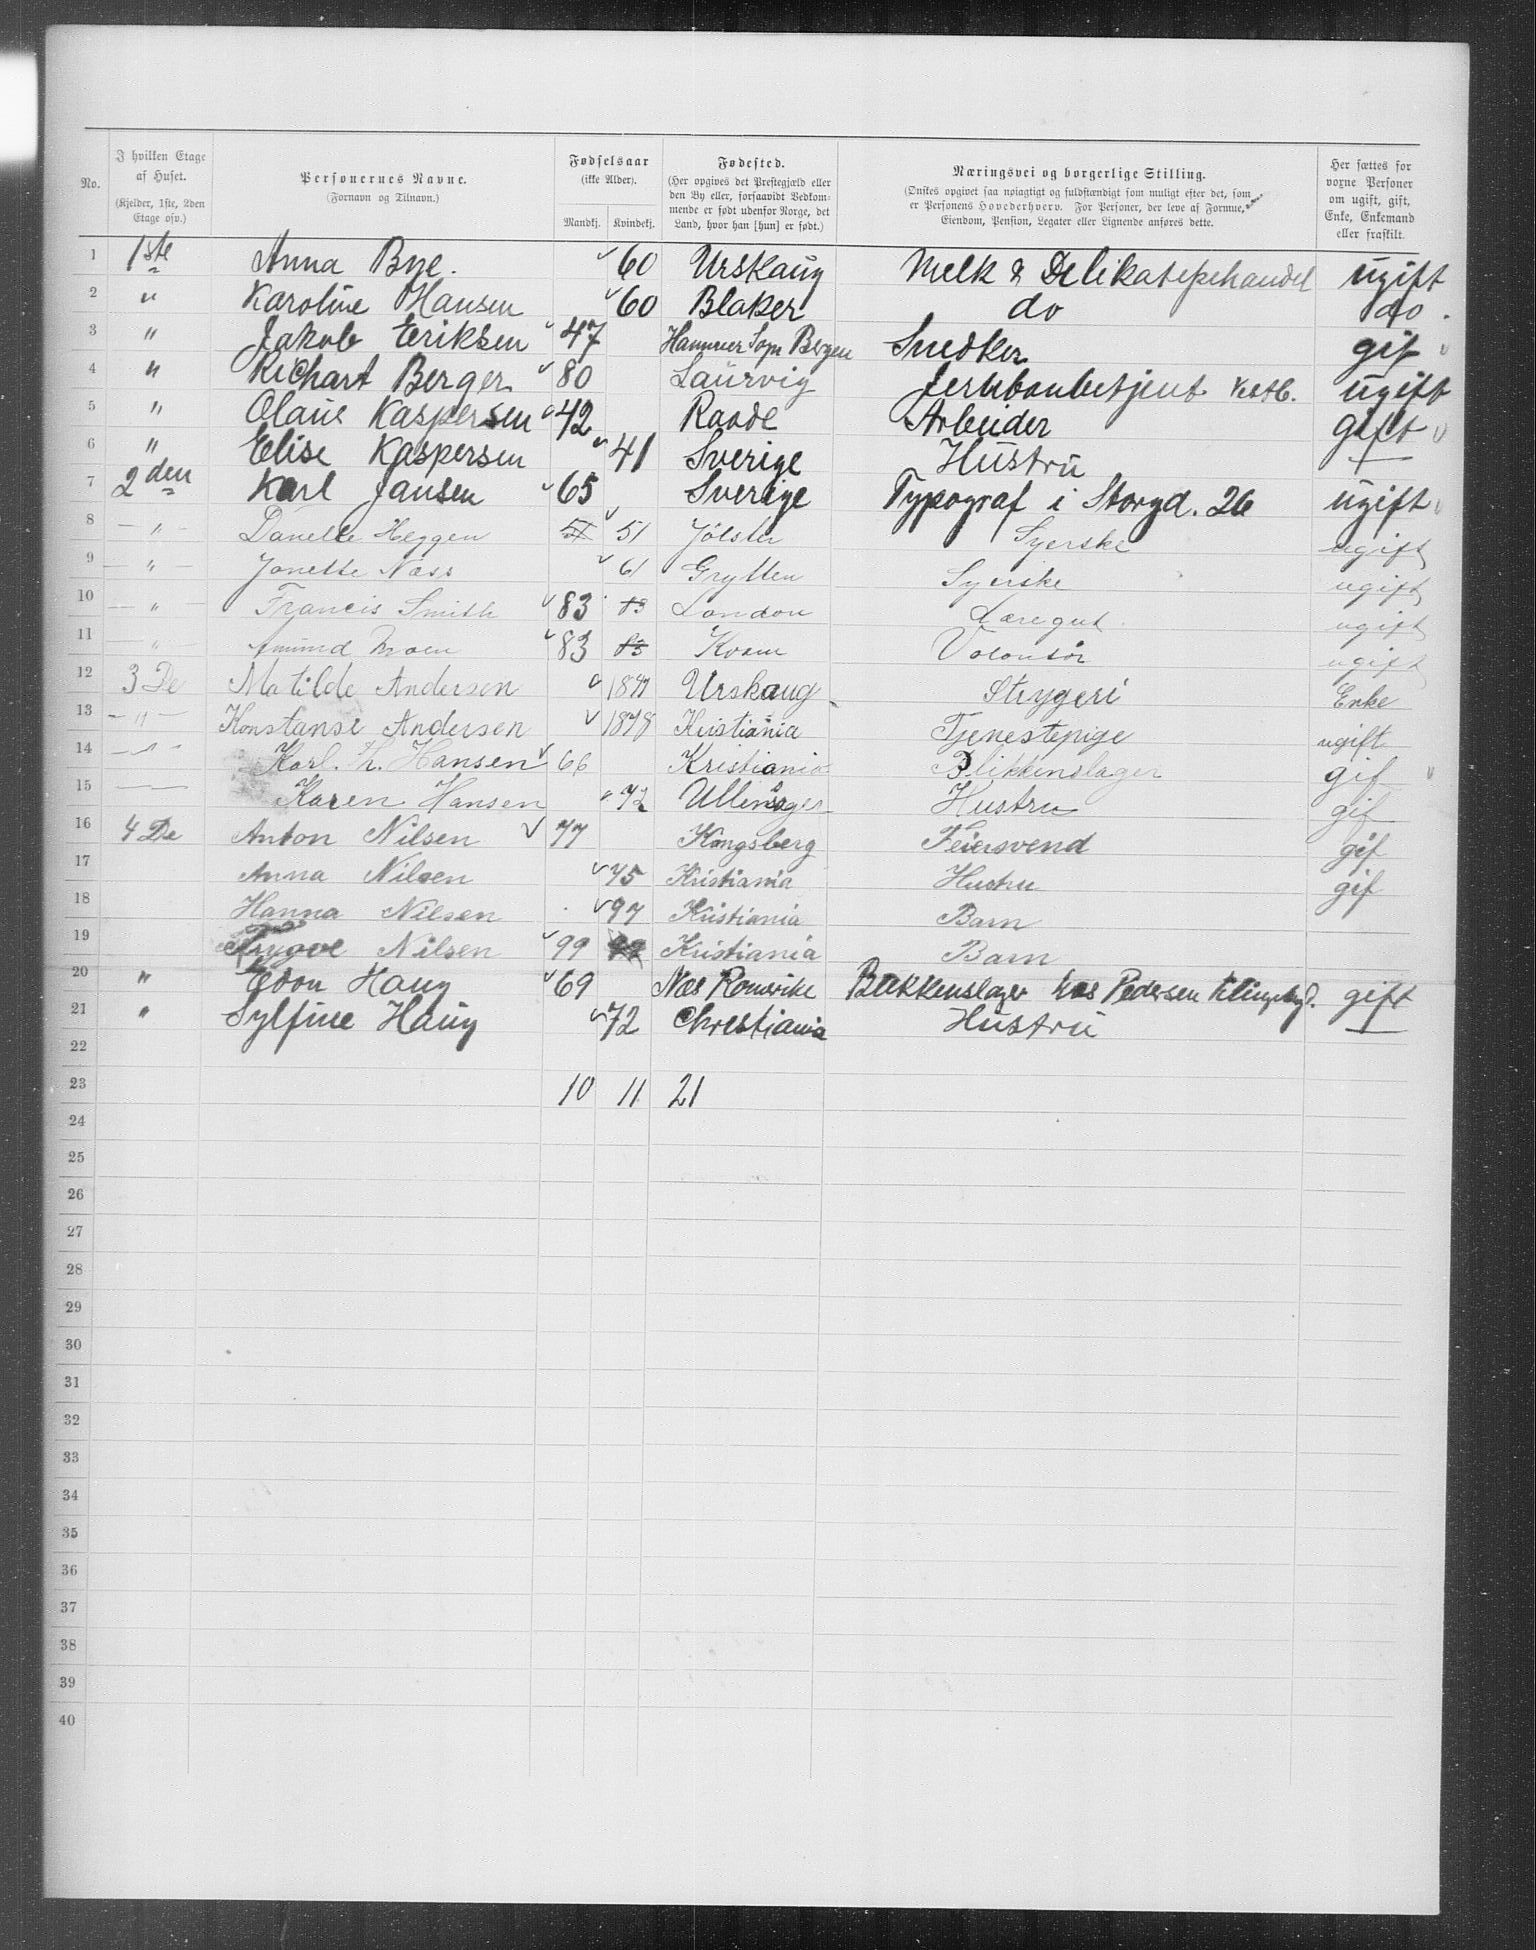 No.
I hvilken Etage af Huset. (Kjelder, 1ste, 2den Etage osv.)
Personernes Navne. (Fornavn og Tilnavn.)
Fødselsaar (ikke Alder). Mandkj. Kvindekj.
Fødested. (Her opgives det Prestegjæld eller den By eller, forsaavidt Vedkommende er født udenfor Norge, det Land, hvor han [hun] er født.)
Næringsvei og borgerlige Stilling. (Ønskes opgivet saa nøiagtigt og fuldstændigt som muligt efter det, som er Personens Hovederhverv. For Personer, der leve af Formue, Eiendom, Pension, Legater eller Lignende anføres dette.
Her sættes for voxne Personer om ugift, gift, Enke, Enkemand eller fraskilt.
1 1ste Anna Bye. 60 Urskaug Melk & Delikatessehandel ugift
2 " Karoline Hansen 60 Blaker do do.
3 " Jakob Eriksen 47 Hammer Sogn Bergen Snedker gif
4 " Richart Berger 80 Laurvig Jernbanbetjent Vestb. ugift
5 " Olaus Kaspersen 42 Raade Arbeider gift
6 " Elise Kaspersen 41 Sverige Hustru —
7 2den Karl Jansen 65 Sverige Typograf i Storgd. 26 ugift
8 — " — Danelle Heggen 51 51 Jölster Syerske ugift
9 — " — Jonette Næss 61 Grytten Syerske ugift
10 — " — Francis Smith 83 83 London Læregut ugift
11 — " — Amund Moen 83 83 Kvam Volontør ugift
12 3De Matilde Andersen Urskaug Strygeri Enke
13 — " — Konstanse Andersen 1878 Kristiania Tjenestepige ugift
14 — " — Karl. Th. Hansen 66 Kristiania Blikkenslager gif
15 — — Karen Hansen 72 Ullensager Hustru gif
16 4De Anton Nilsen 77 Kongsberg Feiersvend gif
17 Anna Nilsen 75 Kristiania Hustru gif
18 Hanna Nilsen 97 Kristiania Barn
19 Trygve Nilsen 99 99 Kristiania Barn
20 " Edon Haug 69 Næs Romerike Blikkenslager hos Pedersen gift
21 " Sylfine Haug 72 Christiania Hustru —
22
23 10 11 21
24
25
26
27
28
29
30
31
32
33
34
35
36
37
38
39
40